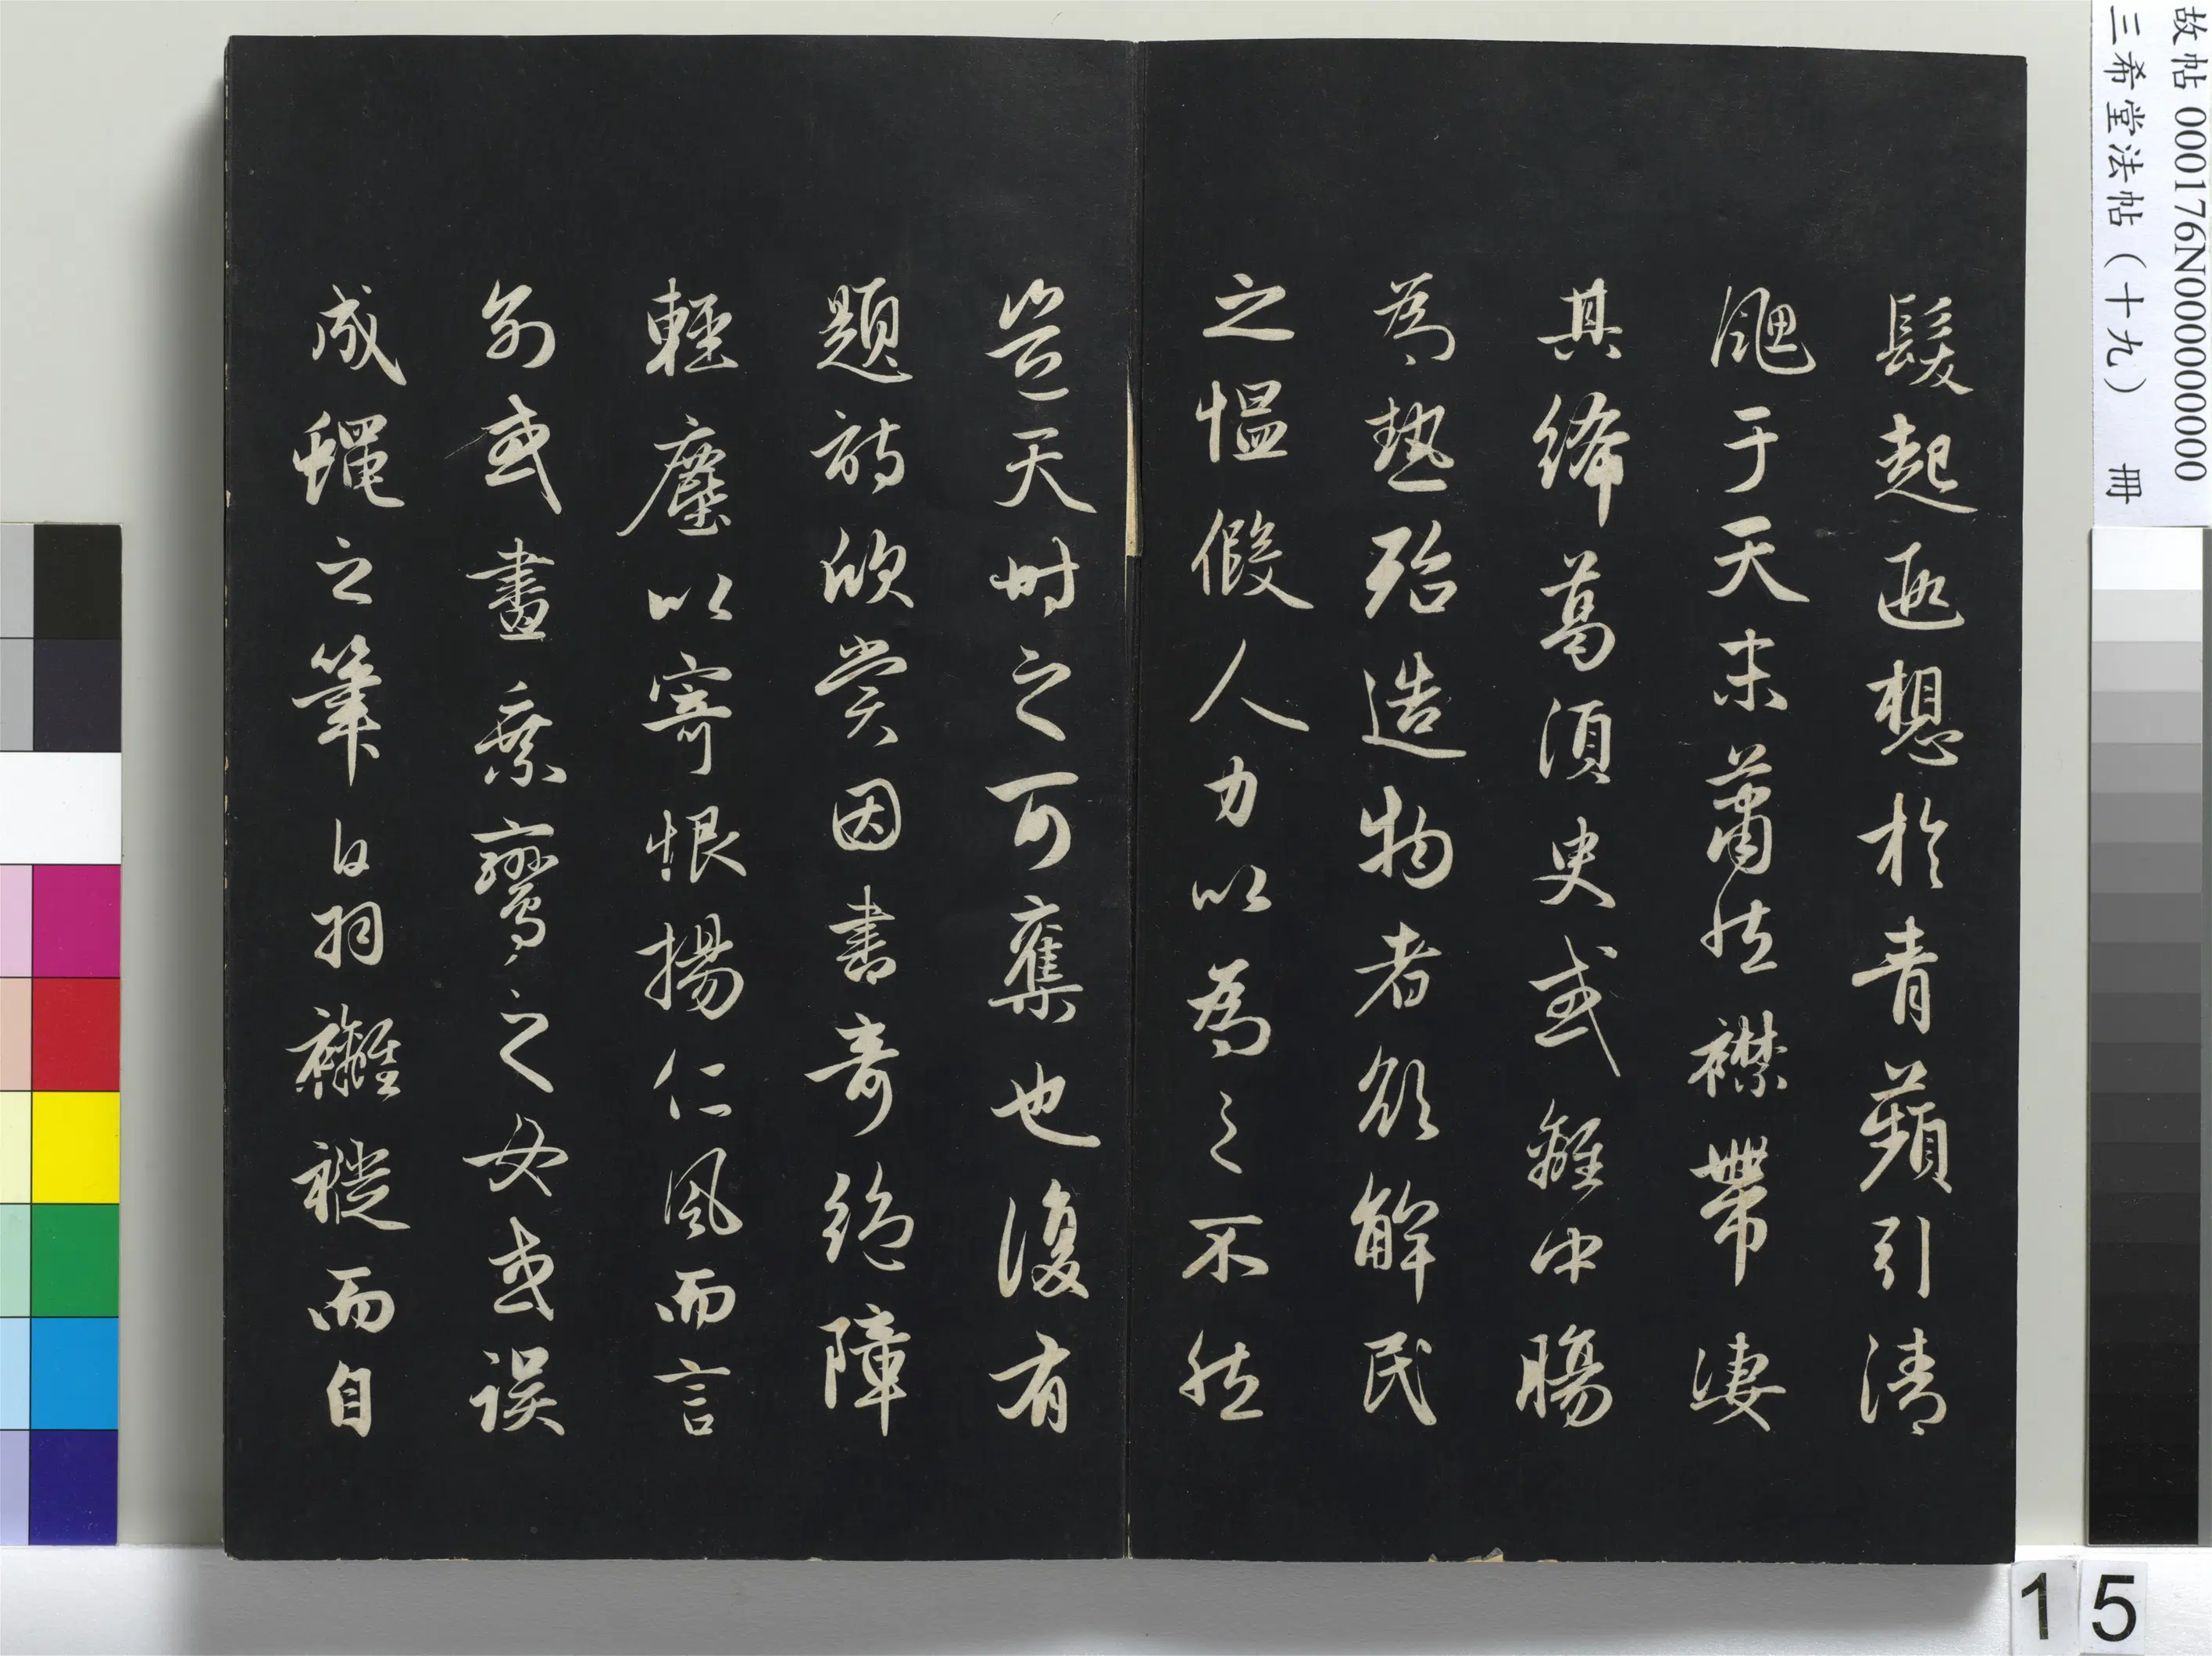 髮起遐想於青蘋引清
颸于天末蕭然襟帶淒
其絺葛須臾或離中腸
為熱殆造物者欲解民
之慍假人力以為之不然
豈天時之可奪也復有
題詩欣賞因書奇絕障
輕塵以寄恨揚仁風而言
別或畫乘鸞之女或誤
成蠅之筆白羽襳褷而自
故帖 000176N000000000
三希堂法帖（十九） 冊
15